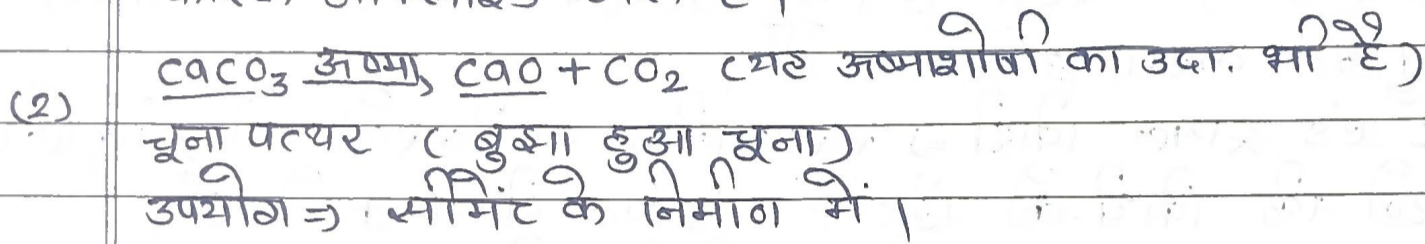 (2) CaCO₃ ऊष्मा→ CaO + CO₂ (यह ऊष्माशोषी का उदा. भी है)
चूना पत्थर (बुझा हुआ चूना)
उपयोग ⇒ सीमेंट के निर्माण में।